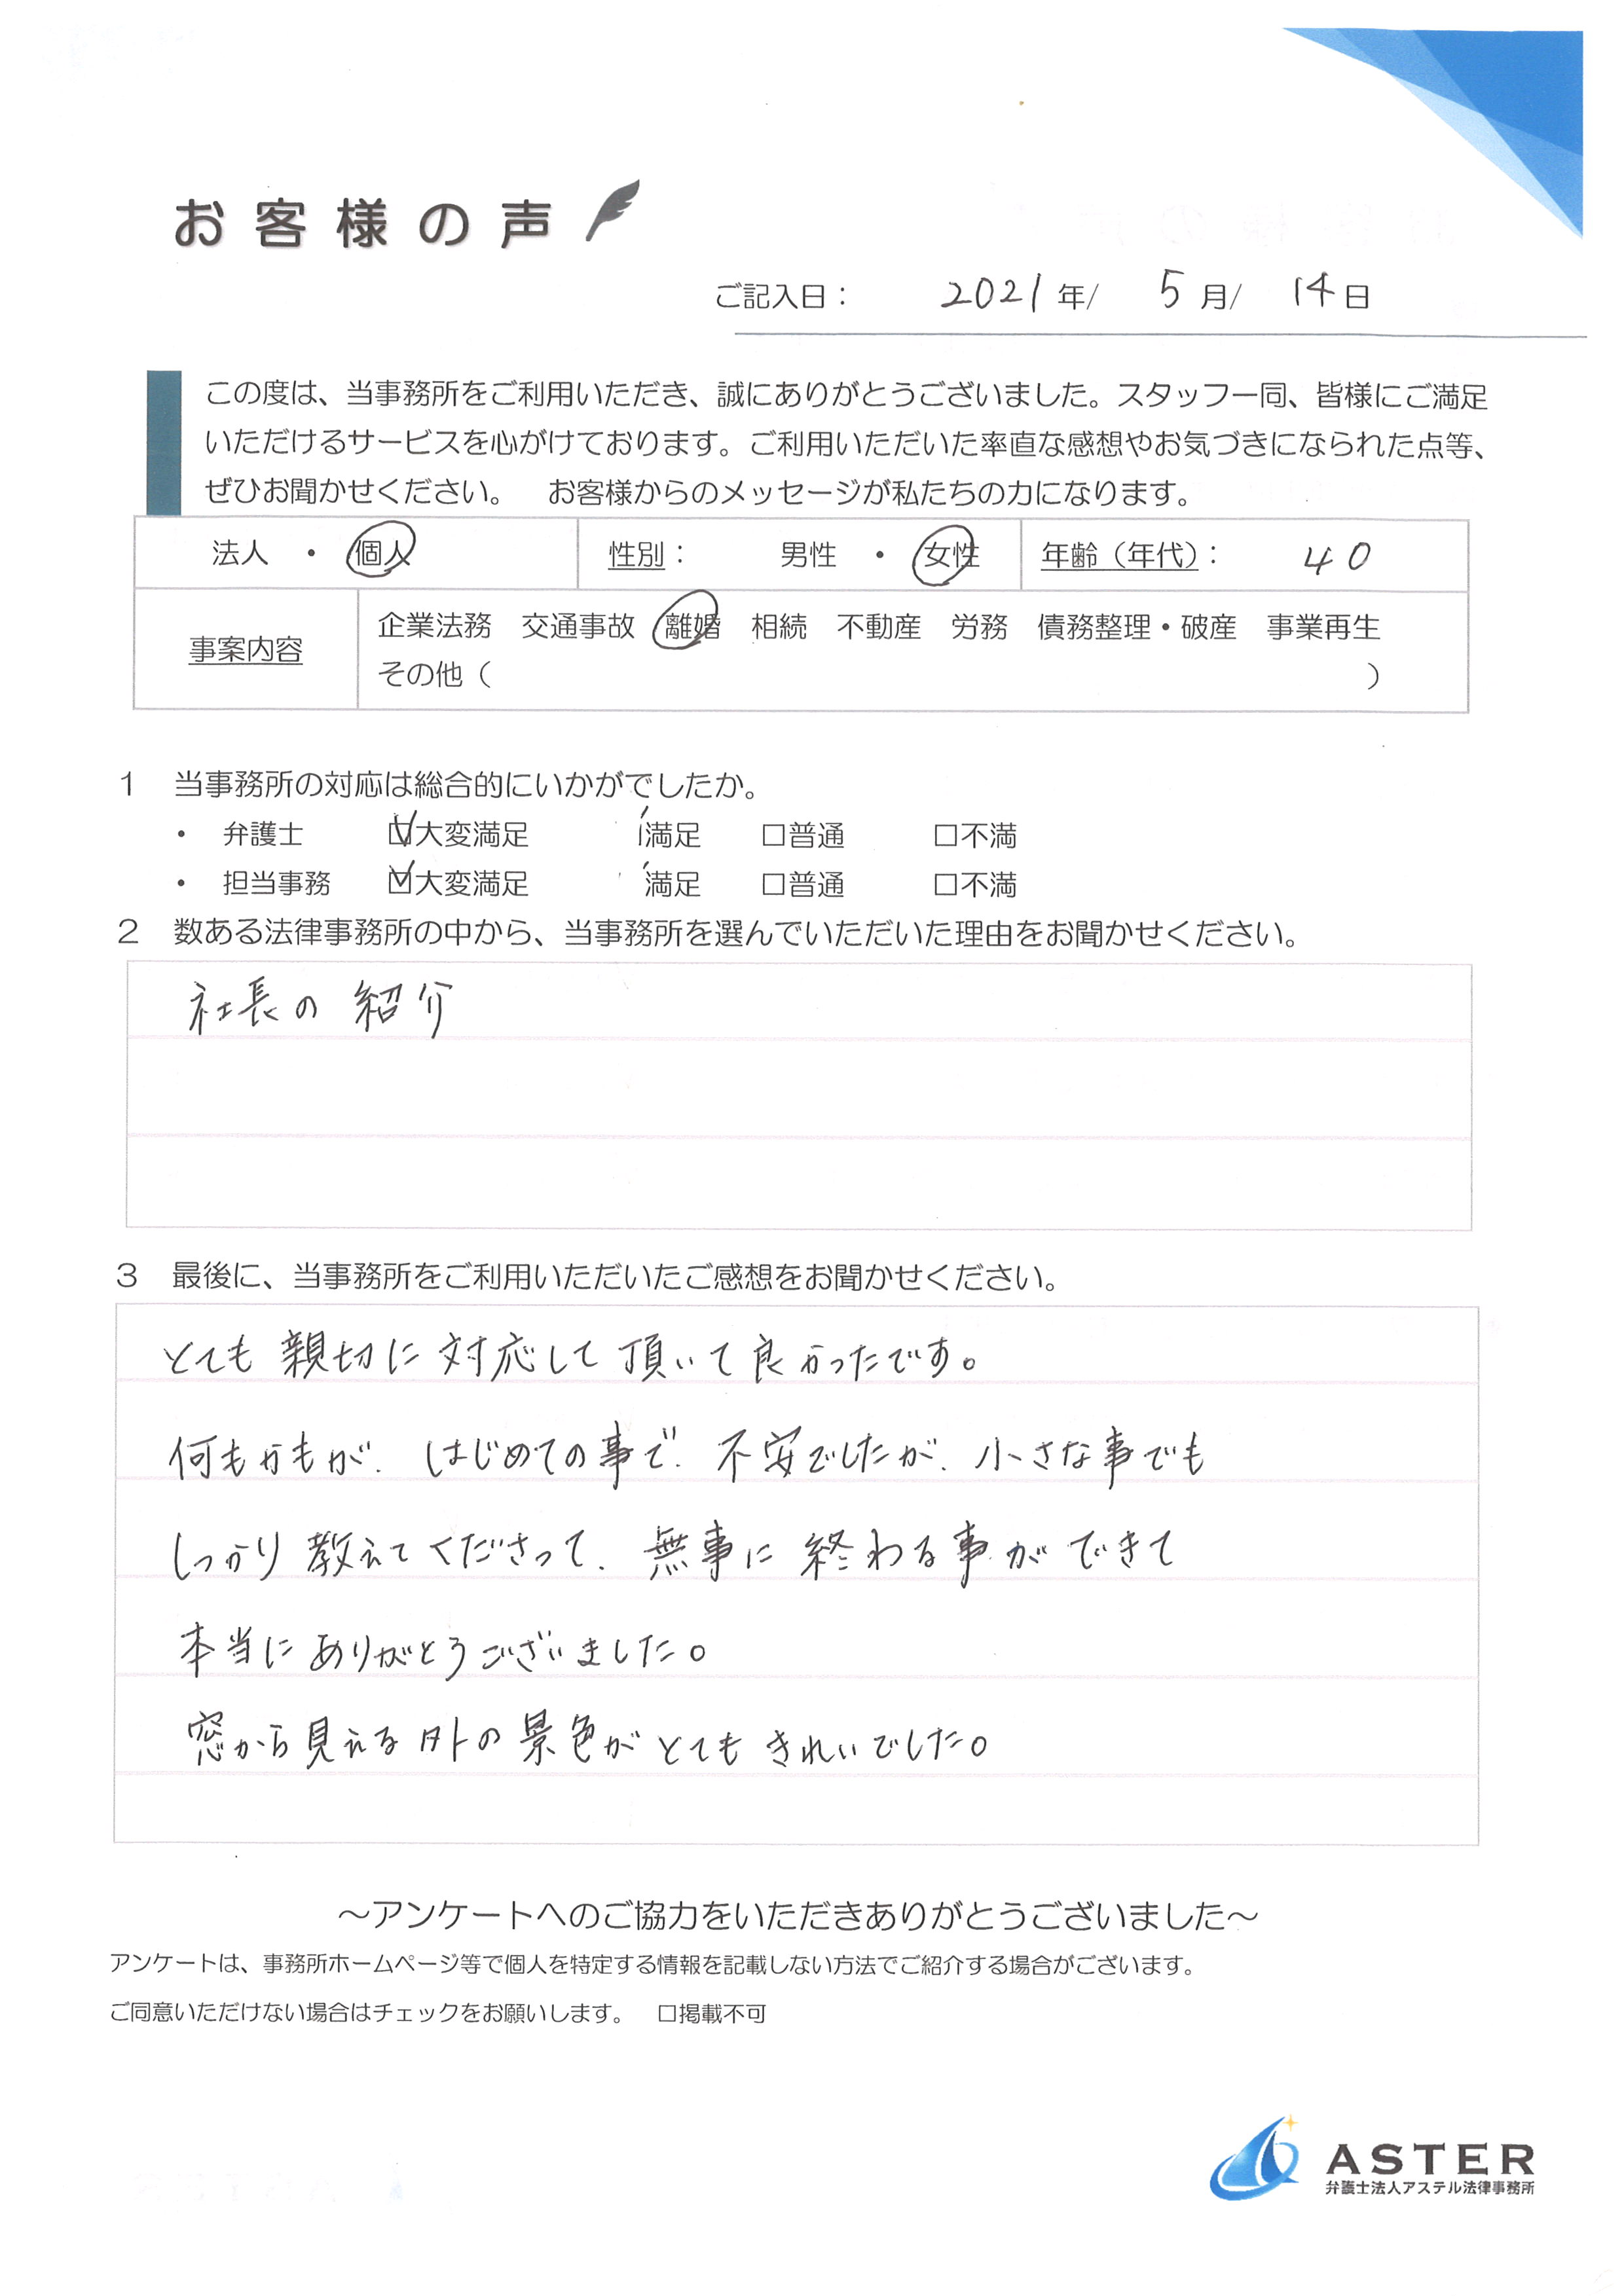 お客様の声
ご記入日： 2021年/ 5月/ 14日
この度は、当事務所をご利用いただき、誠にありがとうございました。スタッフ一同、皆様にご満足
いただけるサービスを心がけております。ご利用いただいた率直な感想やお気づきになられた点等、
ぜひお聞かせください。 お客様からのメッセージが私たちの力になります。
法人 ・ 個人 性別： 男性 ・ 女性 年齢（年代）： 40
事案内容
企業法務 交通事故 離婚 相続 不動産 労務 債務整理・破産 事業再生
その他（ ）
1 当事務所の対応は総合的にいかがでしたか。
・ 弁護士 ☑大変満足 満足 □普通 □不満
・ 担当事務 ☑大変満足 満足 □普通 □不満
2 数ある法律事務所の中から、当事務所を選んでいただいた理由をお聞かせください。
社長の紹介
3 最後に、当事務所をご利用いただいたご感想をお聞かせください。
とても親切に対応して頂いて良かったです。
何もかもが、はじめての事で、不安でしたが、小さな事でも
しっかり教えてくださって、無事に終わる事ができて
本当にありがとうございました。
窓から見える外の景色がとてもきれいでした。
～アンケートへのご協力をいただきありがとうございました～
アンケートは、事務所ホームページ等で個人を特定する情報を記載しない方法でご紹介する場合がございます。
ご同意いただけない場合はチェックをお願いします。 □掲載不可
ASTER
弁護士法人アステル法律事務所